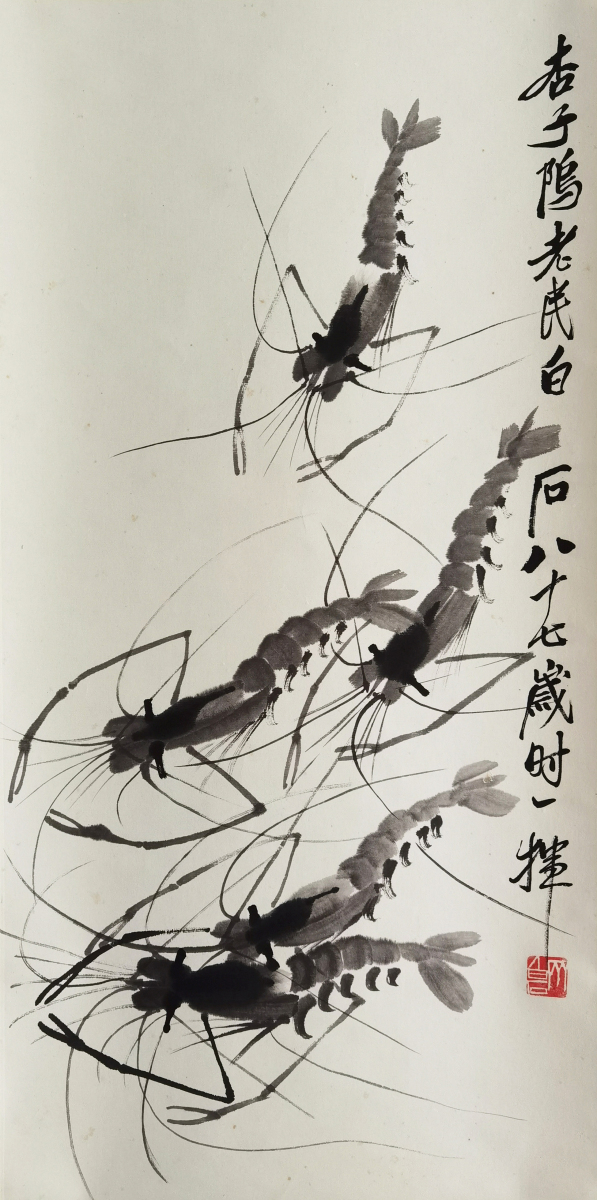 杏子隖老民白石八十七歲时一揮